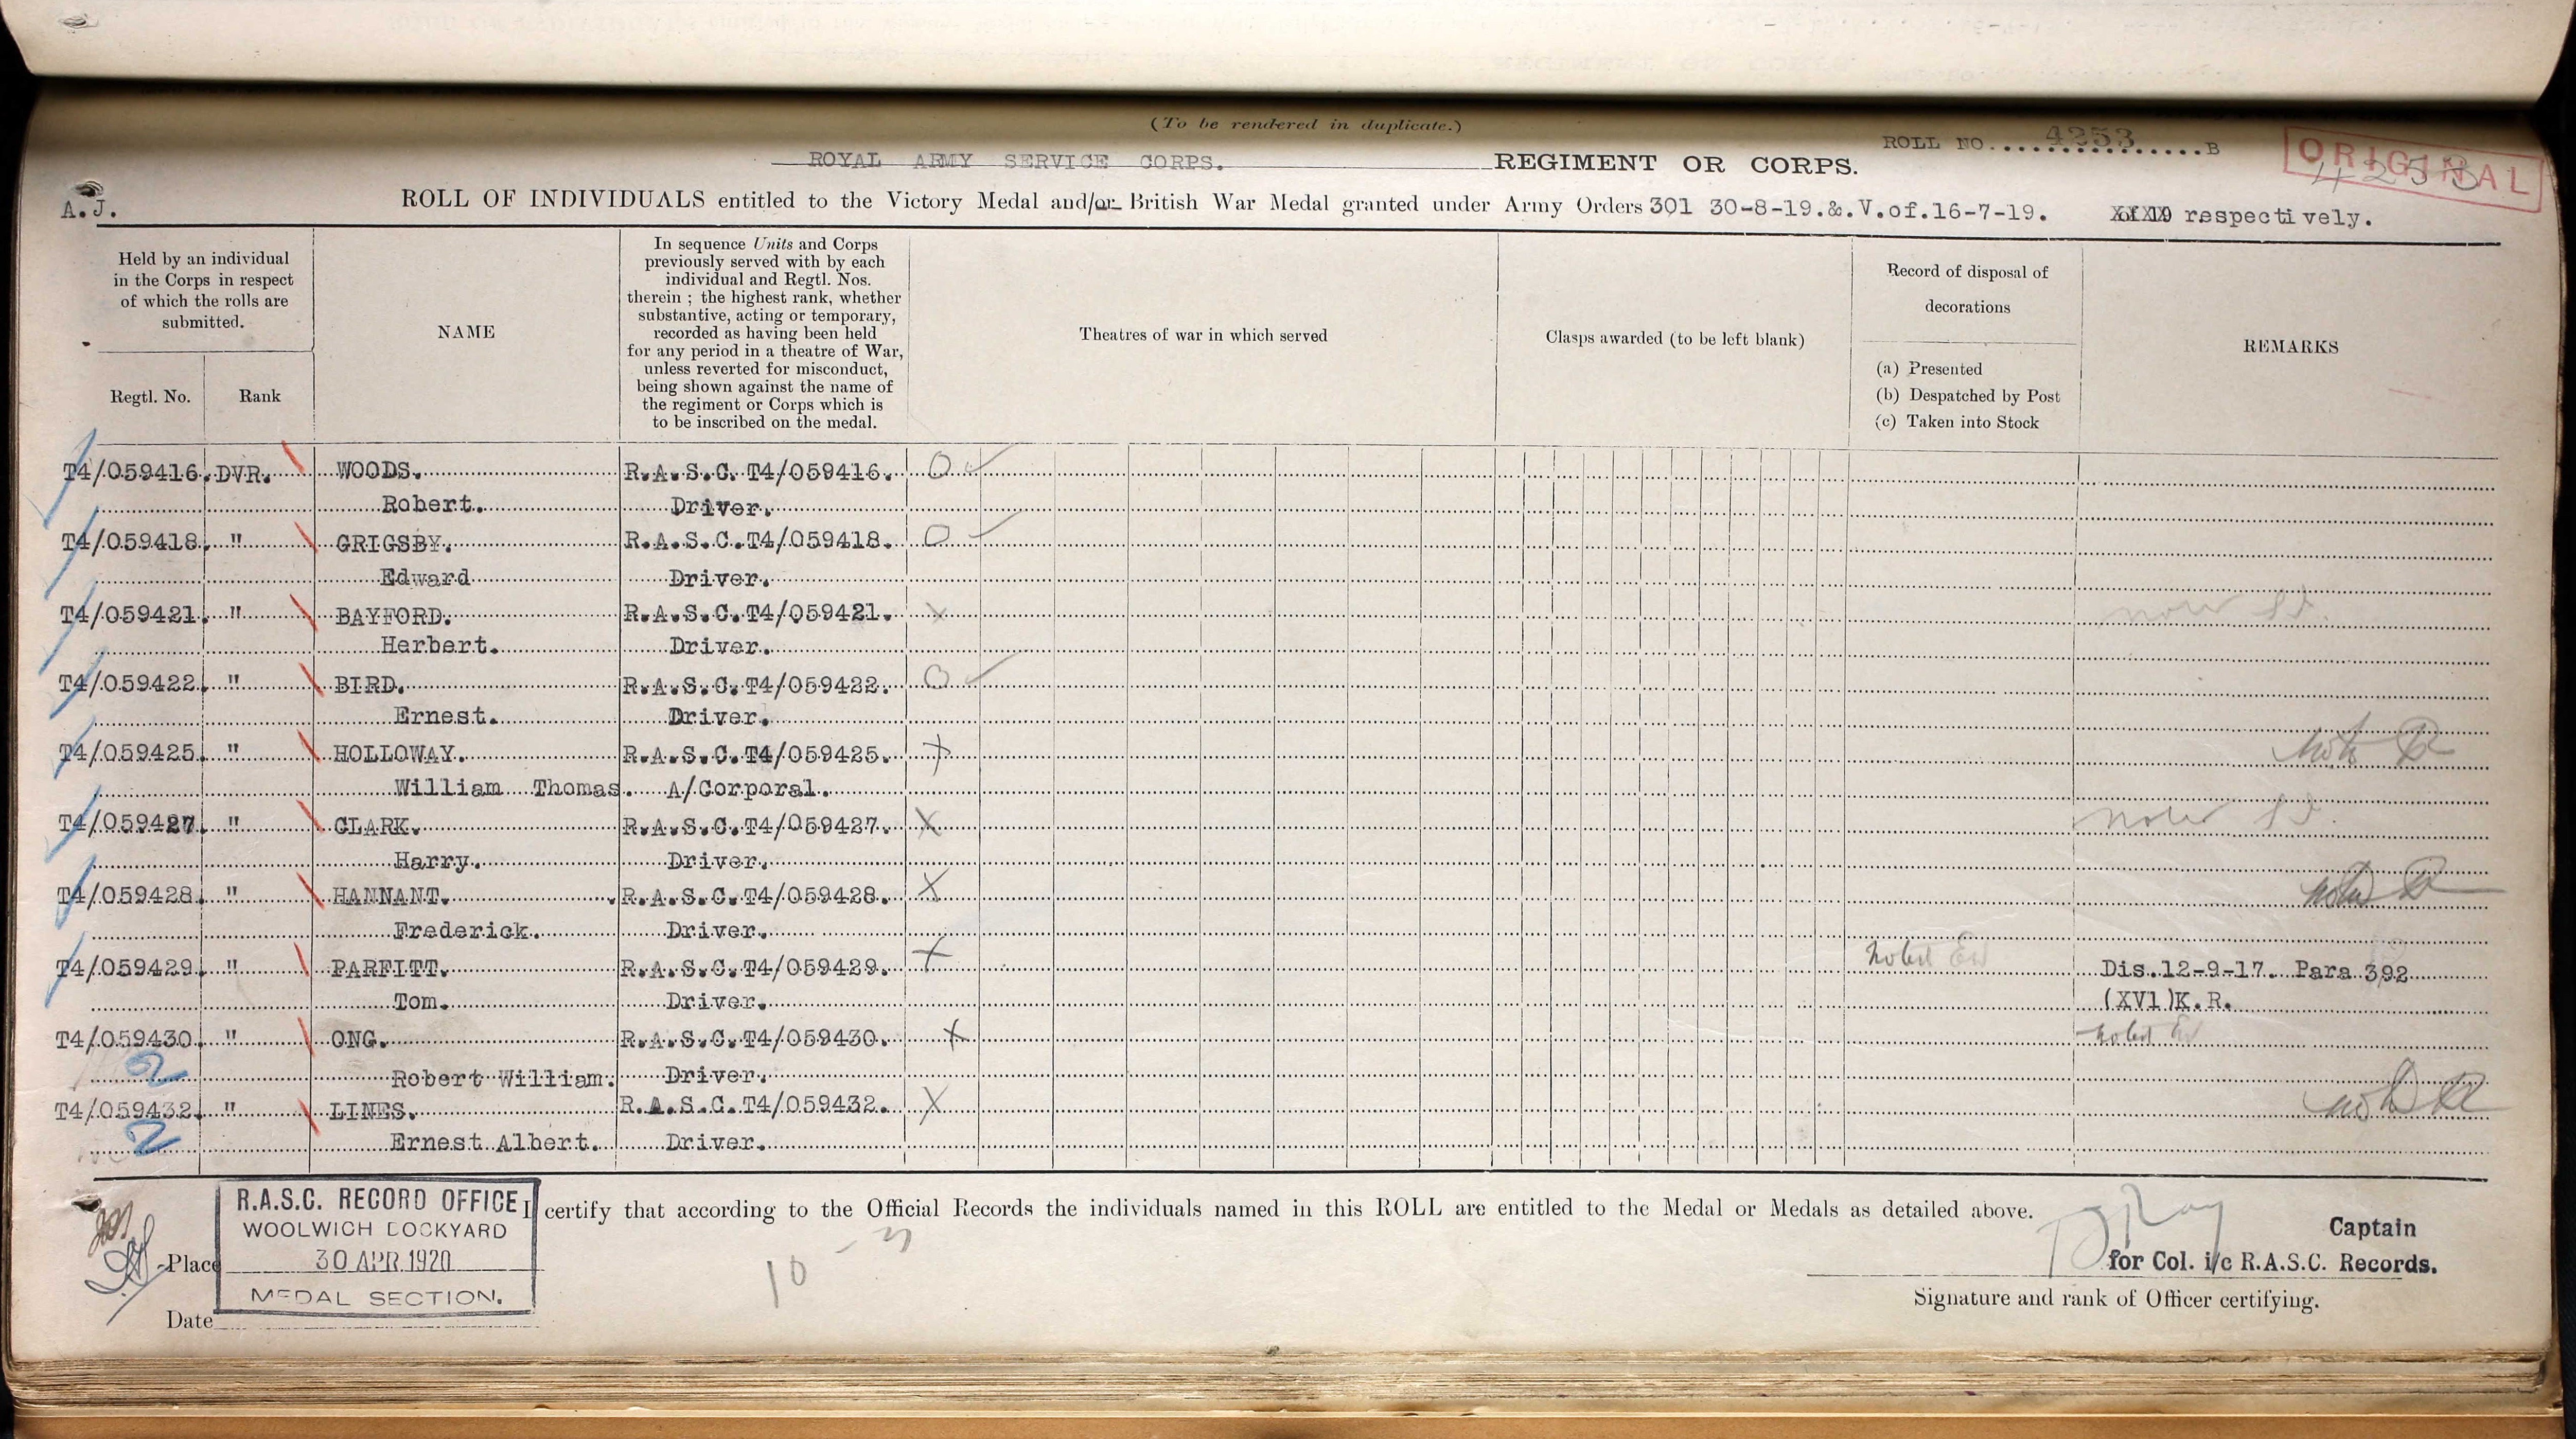 (To be rendered in duplicate.)
ROYAL ARMY SERVICE CORPS. REGIMENT OR CORPS. ROLL NO. 4253 B ORIGINAL
4253
A.J. ROLL OF INDIVIDUALS entitled to the Victory Medal and/or British War Medal granted under Army Orders 301 30-8-19.&.V.of.16-7-19. respectively.
Held by an individual
in the Corps in respect
of which the rolls are
submitted.
Regtl. No. Rank
NAME
In sequence Units and Corps
previously served with by each
individual and Regtl. Nos.
therein ; the highest rank, whether
substantive, acting or temporary,
recorded as having been held
for any period in a theatre of War,
unless reverted for misconduct,
being shown against the name of
the regiment or Corps which is
to be inscribed on the medal.
Theatres of war in which served
Clasps awarded (to be left blank)
Record of disposal of
decorations
(a) Presented
(b) Despatched by Post
(c) Taken into Stock
REMARKS
T4/059416. DVR. WOODS. R.A.S.C. T4/059416. O
Robert. Driver.
T4/059418. " GRIGSBY. R.A.S.C.T4/059418. O
Edward Driver.
T4/059421. " BAYFORD. R.A.S.C.T4/059421. X
Herbert. Driver.
T4/059422. " BIRD. R.A.S.C.T4/059422. O
Ernest. Driver.
T4/059425. " HOLLOWAY. R.A.S.C.T4/059425. X
William Thomas. A/Corporal.
T4/059427. " CLARK. R.A.S.C.T4/059427. X
Harry. Driver.
T4/059428. " HANNANT. R.A.S.C.T4/059428. X
Frederick. Driver.
T4/059429. " PARFITT. R.A.S.C.T4/059429. X Noted Dis.12-9-17. Para 392
Tom. Driver. (XV1)K.R.
T4/059430. " ONG. R.A.S.C.T4/059430. X noted
2 Robert William. Driver.
T4/059432. " LINES. R.A.S.C.T4/059432. X
2 Ernest Albert. Driver.
I certify that according to the Official Records the individuals named in this ROLL are entitled to the Medal or Medals as detailed above.
R.A.S.C. RECORD OFFICE
WOOLWICH DOCKYARD
30 APR 1920
MEDAL SECTION.
Place
Date
10
Captain
for Col. i/c R.A.S.C. Records.
Signature and rank of Officer certifying.